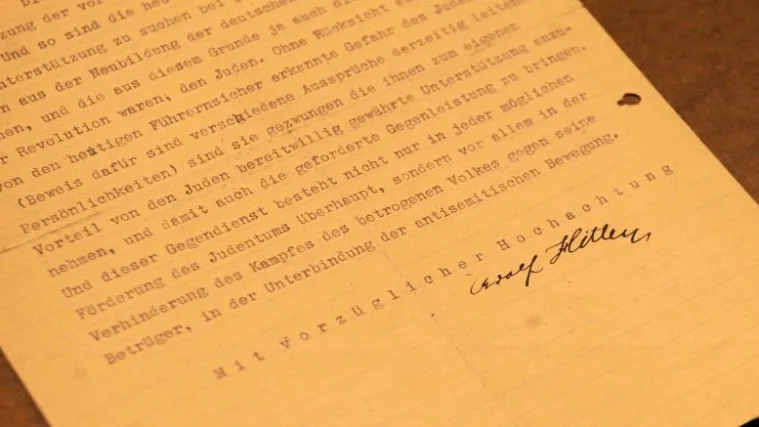 Di
zung der vor
Und so sind die heu
nterstützung zu suchen bei
n aus der Neubildung der deutschen
hen, und die aus diesem Grunde ja auch die
r Revolution waren, den Juden. Ohne Rücksicht
von den heutigen Führernsicher erkannte Gefahr des Juden
(Beweis dafür sind verschiedene Aussprüche derzeitig leiten
Persönlichkeiten) sind sie gezwungen die ihnen zum eigenen
Vorteil von den Juden bereitwillig gewährte Unterstützung anzu-
nehmen, und damit auch die geforderte Gegenleistung zu bringen.
Und dieser Gegendienst besteht nicht nur in jeder möglichen
Förderung des Judentums überhaupt, sondern vor allem in der
Verhinderung des Kampfes des betrogenen Volkes gegen seine
Betrüger, in der Unterbindung der antisemitischen Bewegung.
Mit vorzüglicher Hochachtung
Adolf Hitler